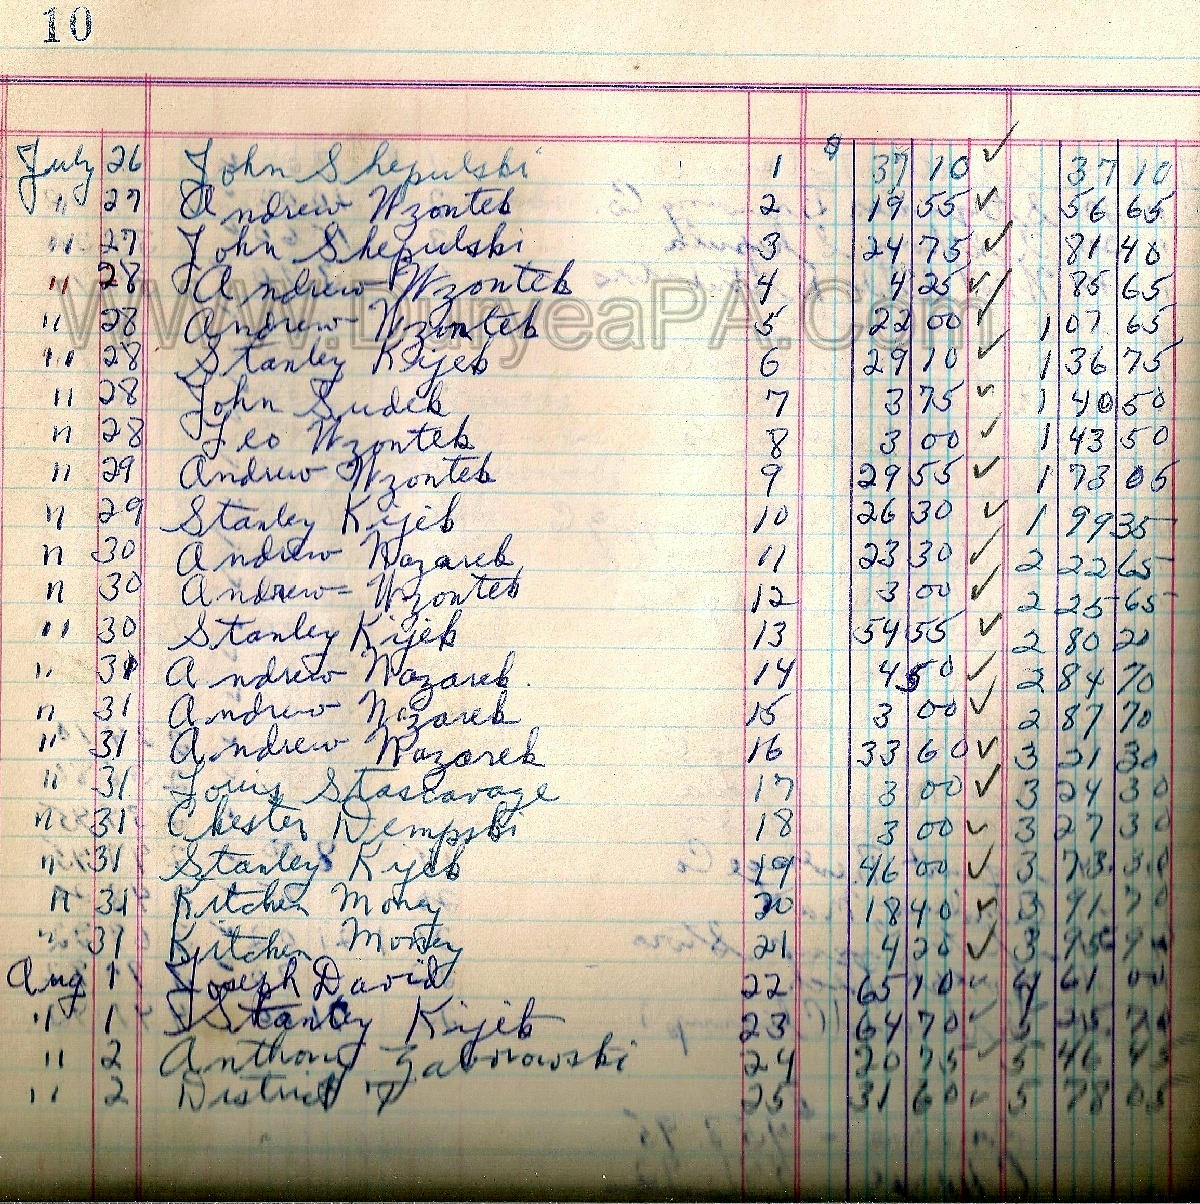 10
July 26 John Shepulski 1 $ 37 10 ✓ 37 10
" 27 Andrew Wzontek 2 19 55 ✓ 56 65
" 27 John Shepulski 3 24 75 ✓ 81 40
" 28 Andrew Wzontek 4 4 25 ✓ 85 65
www.DuryeaPA.Com
" 28 Andrew Wzontek 5 22 00 ✓ 1 07 65
" 28 Stanley Kijek 6 29 10 ✓ 1 36 75
" 28 John Sudek 7 3 75 ✓ 1 40 50
" 28 Leo Wzontek 8 3 00 ✓ 1 43 50
" 29 Andrew Wzontek 9 29 55 ✓ 1 73 05
" 29 Stanley Kijek 10 26 30 ✓ 1 99 35
" 30 Andrew Nazarek 11 23 30 ✓ 2 22 65
" 30 Andrew Wzontek 12 3 00 ✓ 2 25 65
" 30 Stanley Kijek 13 54 55 ✓ 2 80 20
" 31 Andrew Nazarek 14 4 50 ✓ 2 84 70
" 31 Andrew Nazarek 15 3 00 ✓ 2 87 70
" 31 Andrew Nazarek 16 33 60 ✓ 3 21 30
" 31 Louis Stascavage 17 3 00 ✓ 3 24 30
" 31 Chester Dempski 18 3 00 ✓ 3 27 30
" 31 Stanley Kijek 19 46 00 ✓ 3 73 30
" 31 Kitchen Money 20 18 40 ✓ 3 91 70
" 31 Kitchen Money 21 4 20 ✓ 3 95 90
Aug 1 Joseph David 22 65 10 ✓ 4 61 00
" 1 Stanley Kijek 23 64 70 ✓ 5 25 70
" 2 Anthony Zabnowski 24 20 75 ✓ 5 46 45
" 2 District 7 25 31 60 ✓ 5 78 05